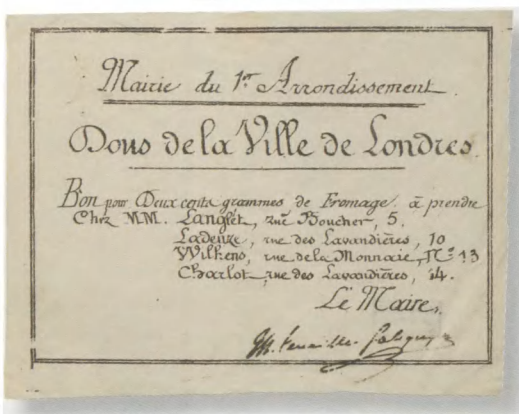 Mairie du 1er Arrondissement.
Dons de la Ville de Londres.
Bon pour Deux cents grammes de Fromage à prendre
Chez MM. Langlet, rue Boucher, 5.
Ladeuze, rue des Lavandières, 10
Wilkens, rue de la Monnaie, No 13
Charlot rue des Lavandières, 14.
Le Maire,